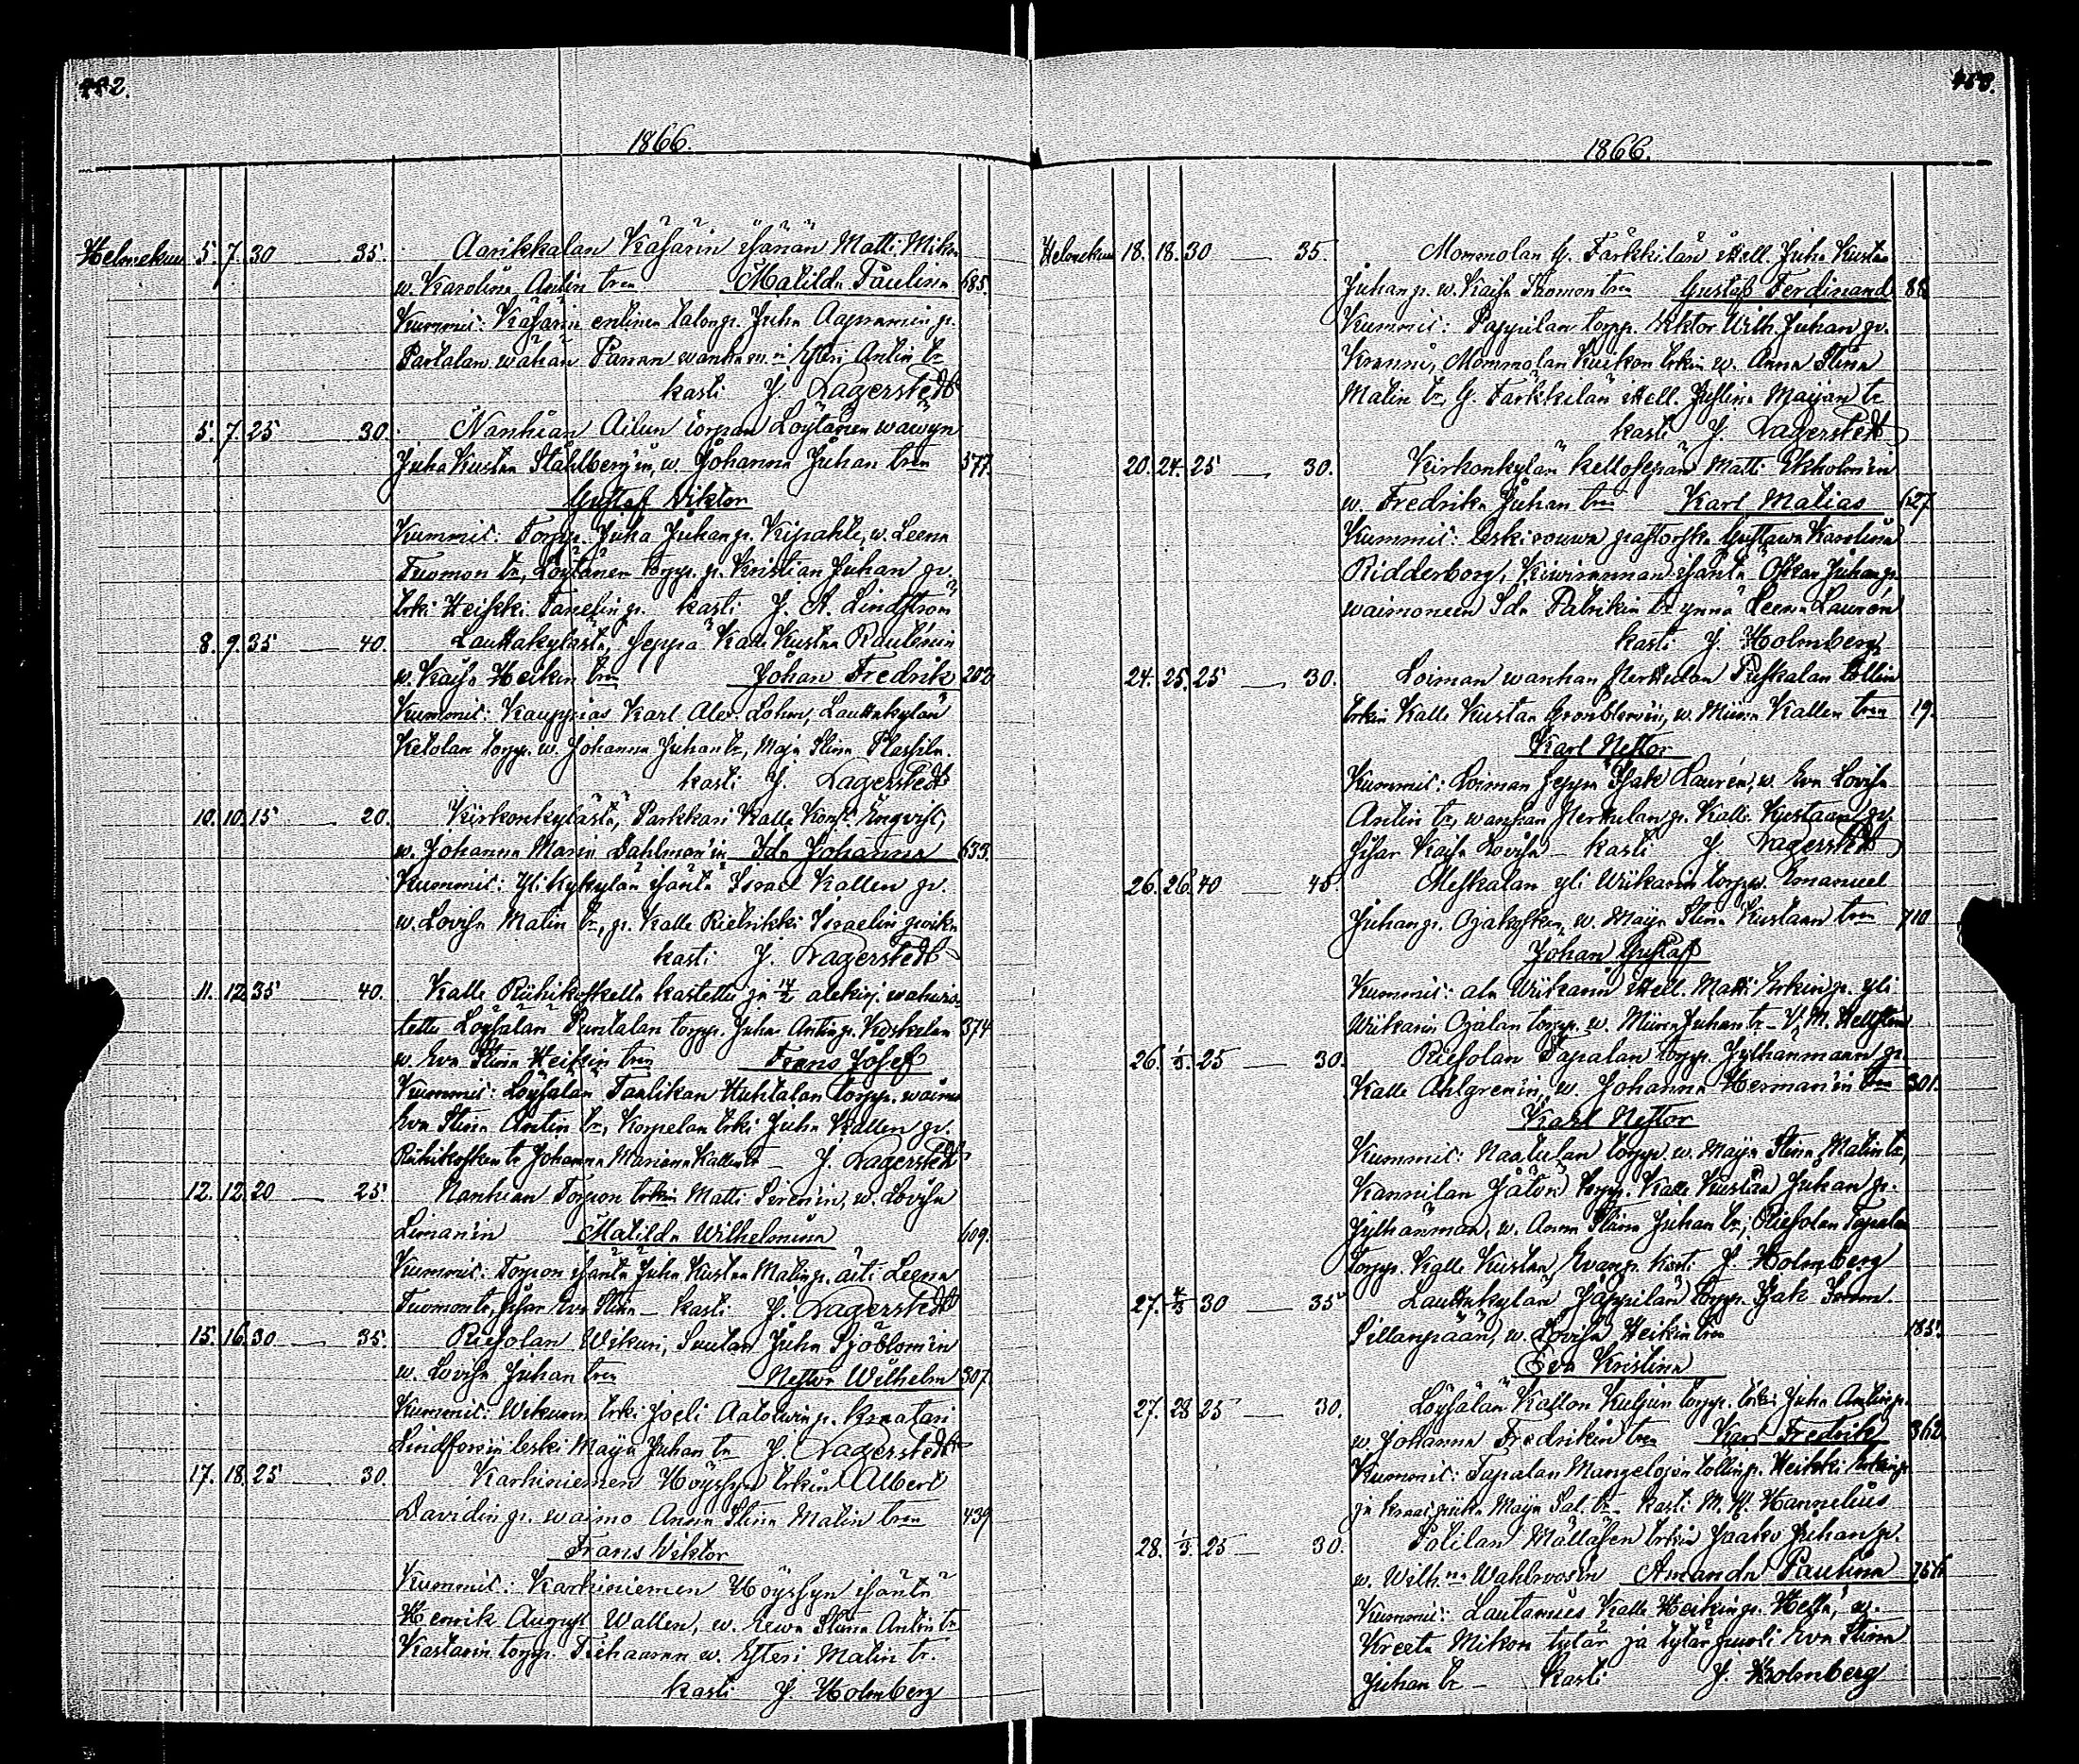 442.
1866.
Helmekuu 5. 7. 30 35. Aarikkalan Käsärin isännän Matti Mikn
w. Karolina Antin tren Matilda Paulina 685.
Kummit: Käsärin entinen talonp. Juha Aapramin p.
Partalan wähän Panun wanha w. Esteri Antin tr
kasti J. Lagerstedt
5. 7. 25 30. Nanhian Ailun torpan Löytänen wäwyn
Juha Kustaa Ståhlberg'in, w. Johanna Juhan tren 577.
Gustaf Viktor
Kummit: Torpp. Juha Juhan p. w. Leena
Tuomon tr, Löytänen torpp. p. Kristian Juhan p.
trki Heikki Tanelin p. kasti J. A. Lindström
8. 9. 35 40. Lauttakylästä, Seppä Kalle Kustaa Rautelin'in
w. Kaisa Heikin tren Johan Fredrik 202
Kummit: Kauppias Karl Alex. Lohm, Lauttakylän
Ketolan torpp. w. Johanna Juhan tr, Maja Stina
kasti J. Lagerstedt
10. 10. 15 20. Kirkonkylästä, Parkkari Kalle Konst. Engvist,
w. Johanna Maria Dahlman'in Ida Johanna 633.
Kummit: isäntä Israel Kallen p.
w. Lovisa Matin tr, p. Kalle Rietrikki Israelin poika
kasti J. Lagerstedt
11. 12. 35 40. Kalle Riihikoskelta kastettu ja 14/2 alekirj. wahwis-
tettu Löysälän Puntalan torpp. Juha Antin p. Koskelan 374
w. Eva Stina Heikin tren Frans Josef
Kummit: Löysälän Tanlikan Huhtalan torpp. waimo
Eva Stina Antin tr, Korpelan trki Juha Kallen p.
Riihikosken tr Johanna Mariana Kallen tr – J. Lagerstedt
12. 12. 20 25. Nanhian Torpon trkin Matti Seren'in, w. Lovisa
Liman'in Matilda Wilhelmina 609.
Kummit: Torpon isäntä Juha Kustaa Matin p. äiti Leena
Tuomon tr, sisar Eva Stina – kasti J. Lagerstedt
15. 16. 30 35. Riesolan Wikuri, Suutari Juha Sjöblom'in
w. Lovisa Juhan tren Nestor Wilhelm 307
Kummit: Wikurin trki Joeli Aatolwin p. Kraatari
Lindforsin leski Maija Juhan tr J. Lagerstedt
17. 18. 25 30. Karhiniemen Höyssyn trkin Albert
Davidin p. waimo Anna Stina Matin tren 439
Frans Viktor
Kummit: Karhiniemen Höyssyn isäntä
Henrik August Wallen, w. Eewa Stina Antin tr
Kastarin torpp. w. Esteri Matin tr.
kasti J. Holmberg
1866.
Helmekuu 18. 18. 30 35. Mommolan G. Färkkilän itsell. Juha Kustaa
Juhan p. w. Kaisa Tuomon tren Gustaf Ferdinand
Kummit: Pappilan torpp. Viktor Wilh. Juhan p.
Mommolan Kuikon trkin w. Anna Stina
Matin tr, G. Färkkilän itsell. Justina Maijan tr
kasti J. Lagerstedt
20. 24. 25 30. Kirkonkylän kellosepän Matti Ekholm'in
w. Fredrika Juhan tren Karl Matias 627
Kummit: Leskirouwa pastorska Gustawa Karolina
Ridderborg, Kiwirannan isäntä Oskar Juhan p.
waimoneen Ida Patrikin tr ynnä Leena Laurén
kasti J. Holmberg
24. 25. 25 30. Loiman wanhan Herttulan Puskalan tollin
trkin Kalle Kustaa Grönblom'in, w. Miina Kallen tren 19.
Karl Nestor
Kummit: Loiman seppä Isak Laurén, w. Eva Lovisa
Antin tr, wanhan Herttulan p. Kalle Kustaan p.
sisar Kaisa Lovisa – kasti J. Lagerstedt
26. 26. 40 45 Meskalan yli Wiikarin torpp. Emanuel
Juhan p. w. Maija Stina Kustaan tren 710
Johan Gustaf
Kummit: ala Wiikarin itsell. Matti Erkin p. yli
Wiikarin Ojalan torpp. w. Miina Juhan tr – M. Hellsten
26. 1/3. 25 30. Riesolan Tapalan torpp. Jylhänmaan p.
Kalle Ahlgren'in, w. Johanna Herman'in tren 301.
Karl Nestor
Kummit: Naatulan torpp. w. Maija Stina Matin tr,
Kannilan torpp. Kalle Kustaa Juhan p.
Jylhänmaa, w. Anna Stiina Juhan tr, Riesolan Tapalan
torpp. Kalle Kustaa kasti J. Holmberg
27. 4/3 30 35 Lauttakylän Jäppilän torpp. Isak
Sillanpään, w. Lovisa Heikin tren 185.
Eva Kristina
27. 28 25 30. Löysälän Kallon Kuljun torpp. trki Juha Antin p.
w. Johanna Fredrikin tren Karl Fredrik 362
Kummit: Tapalan Mangelojan tollin p. Heikki Erkin p.
ja piika Maija Sal. tr – kasti M. W. Hannelius
28. 1/3. 25 30. Palilan Mälläsen trkin Jaako Juhan p.
w. Wilh.na Wahlroos'in Amanda Paulina
Kummit: Lautamies Kalle Heikin p. w.
Kreeta Mikon tytär ja tytär puoli Eva Stina
Juhan tr – Kasti J. Holmberg